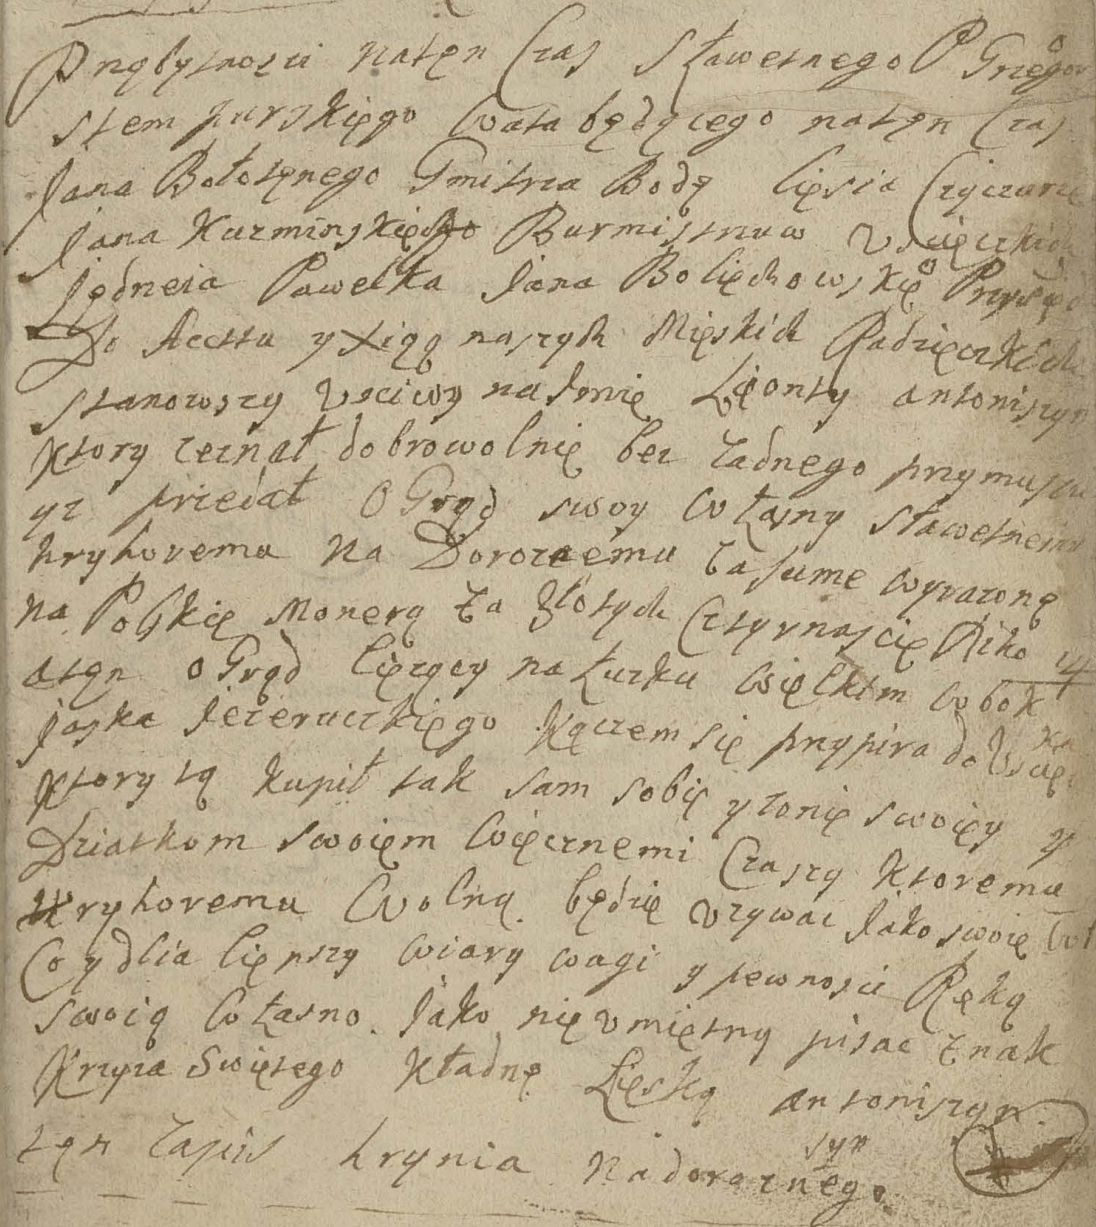 Przybytnosci natęn Czas Sławetnego P Grzegor
stempurskięgo woŁta będącego natęn Czas
Jana Bołotęnego Gmitrza Bodę Lięsia
Jana Kuzminskięgo Burmistrzuw
Jędrzeia Pawełka Jana Bolięchowskię
Do Acctu y Xiąg naszych Mięskich Radzięczkich
stanowszy Vcciwy na Jmię Lięonty antoniszyn
Ktory zeznał dobrowolnię bez zadnego przymuszu
yz przedał OGrąd swoy wŁasny sławetnemu
hryhoremu Na Doroznemu za sume wyrazonę
na Polskię Monerą za złotych Cztyrnascię Niko 14
aten oGrąd lięzący na Łuzku Więlkim wobok
Jaska Jezeruczkięgo Kączem się przypira do
Ktory tę kupił tak sam sobię y zonię swoięy y
Dziatkom swoięm Więcznemi Czaszy Ktoremu
hryhoremu Wolną będzię Vzywac Jako swoię
Co y dlia lięпszy wiary wagi y pewnosci Ręką
swoią wŁasno Jako nię Vmiętny pisac znak
Krzyza Swiętego Kładnę Lięską antoniszyn
syn
tęn zapis hrynia nadoroznego